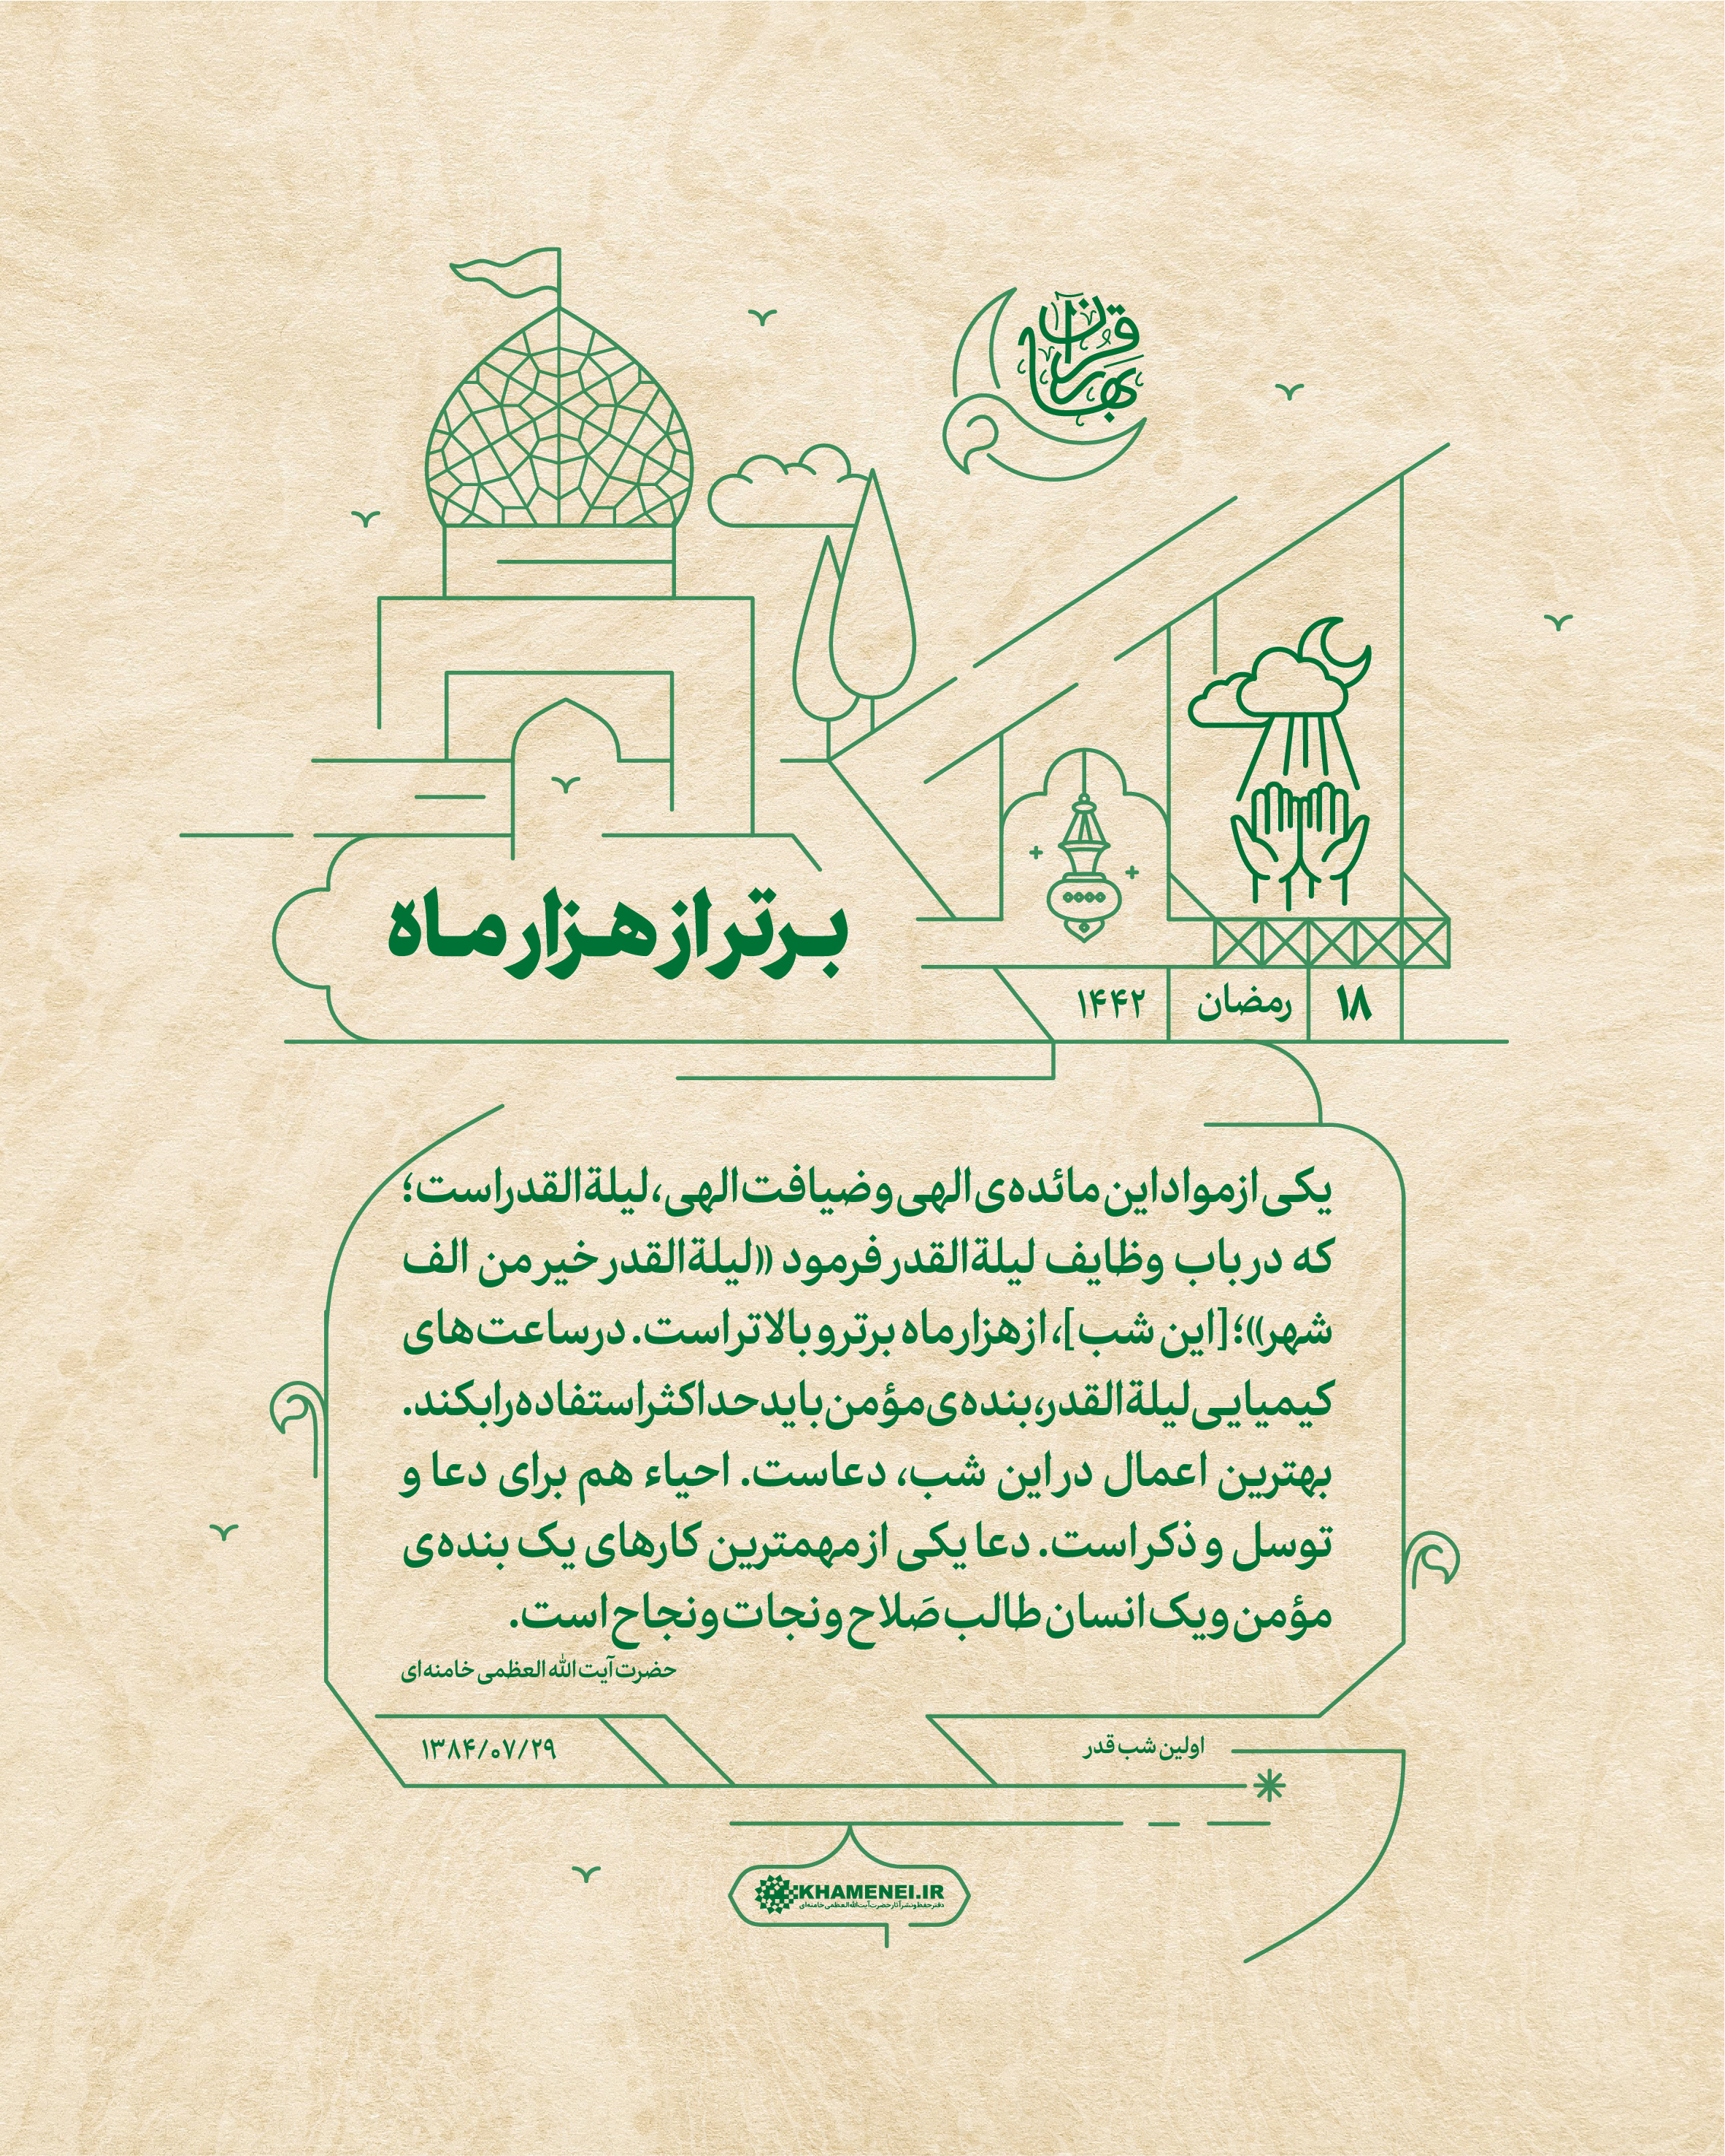 بهار قرآن
برتر از هزار ماه
۱۸ رمضان ۱۴۴۲
یکی از مواد این مائده‌ی الهی و ضیافت الهی، لیلة‌القدر است؛
که در باب وظایف لیلة‌القدر فرمود «لیلة‌القدر خیر من الف
شهر»؛ [این شب]، از هزار ماه برتر و بالاتر است. در ساعت‌های
کیمیایی لیلة‌القدر، بنده‌ی مؤمن باید حداکثر استفاده را بکند.
بهترین اعمال در این شب، دعاست. احیاء هم برای دعا و
توسل و ذکر است. دعا یکی از مهمترین کارهای یک بنده‌ی
مؤمن و یک انسان طالب صَلاح و نجات و نجاح است.
حضرت آیت‌الله العظمی خامنه‌ای
اولین شب قدر
۱۳۸۴/۰۷/۲۹
KHAMENEI.IR
دفتر حفظ و نشر آثار حضرت آیت‌الله العظمی خامنه‌ای